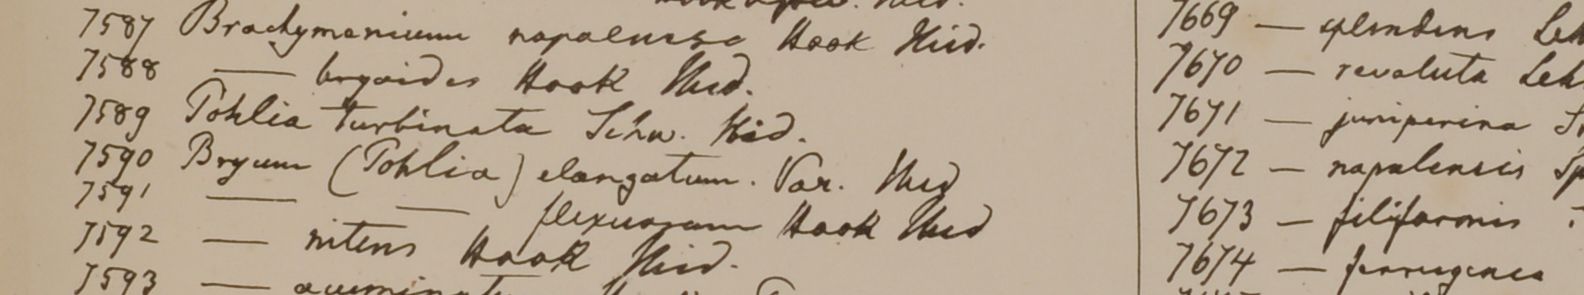 7587 Brachymenium napalense Hook Ibid.
7588 — bryoides Hook Ibid.
7589 Pohlia turbinata Schw. Ibid.
7590 Bryum (Pohlia) elongatum. Var. Ibid
7591 — — flexuosum Hook Ibid
7592 — nitens Hook Ibid.
7593 —
7669 — splendens Leh
7670 — revoluta Leh
7671 — juniperina
7672 — napalensis Sp
7673 — filiformis
7674 — ferruginea